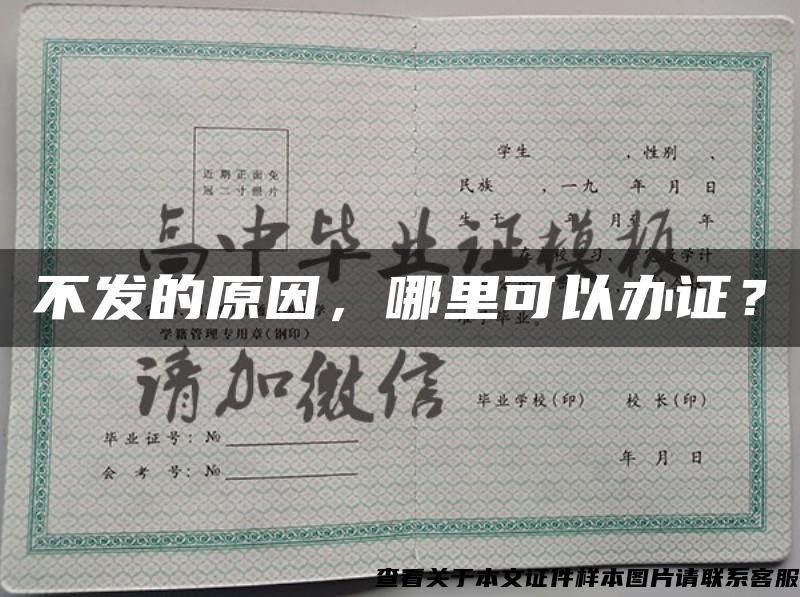 学生 ，性别 、
近期正面免
冠二寸照片
民族 ，一九 年 月 日
年 月至 年
高中毕业证模板
不发的原因，哪里可以办证？
学籍管理专用章(钢印)
毕业。
请加微信
毕业学校(印) 校长(印)
毕业证号：№
会考号：№
年 月 日
查看关于本文证件样本图片请联系客服